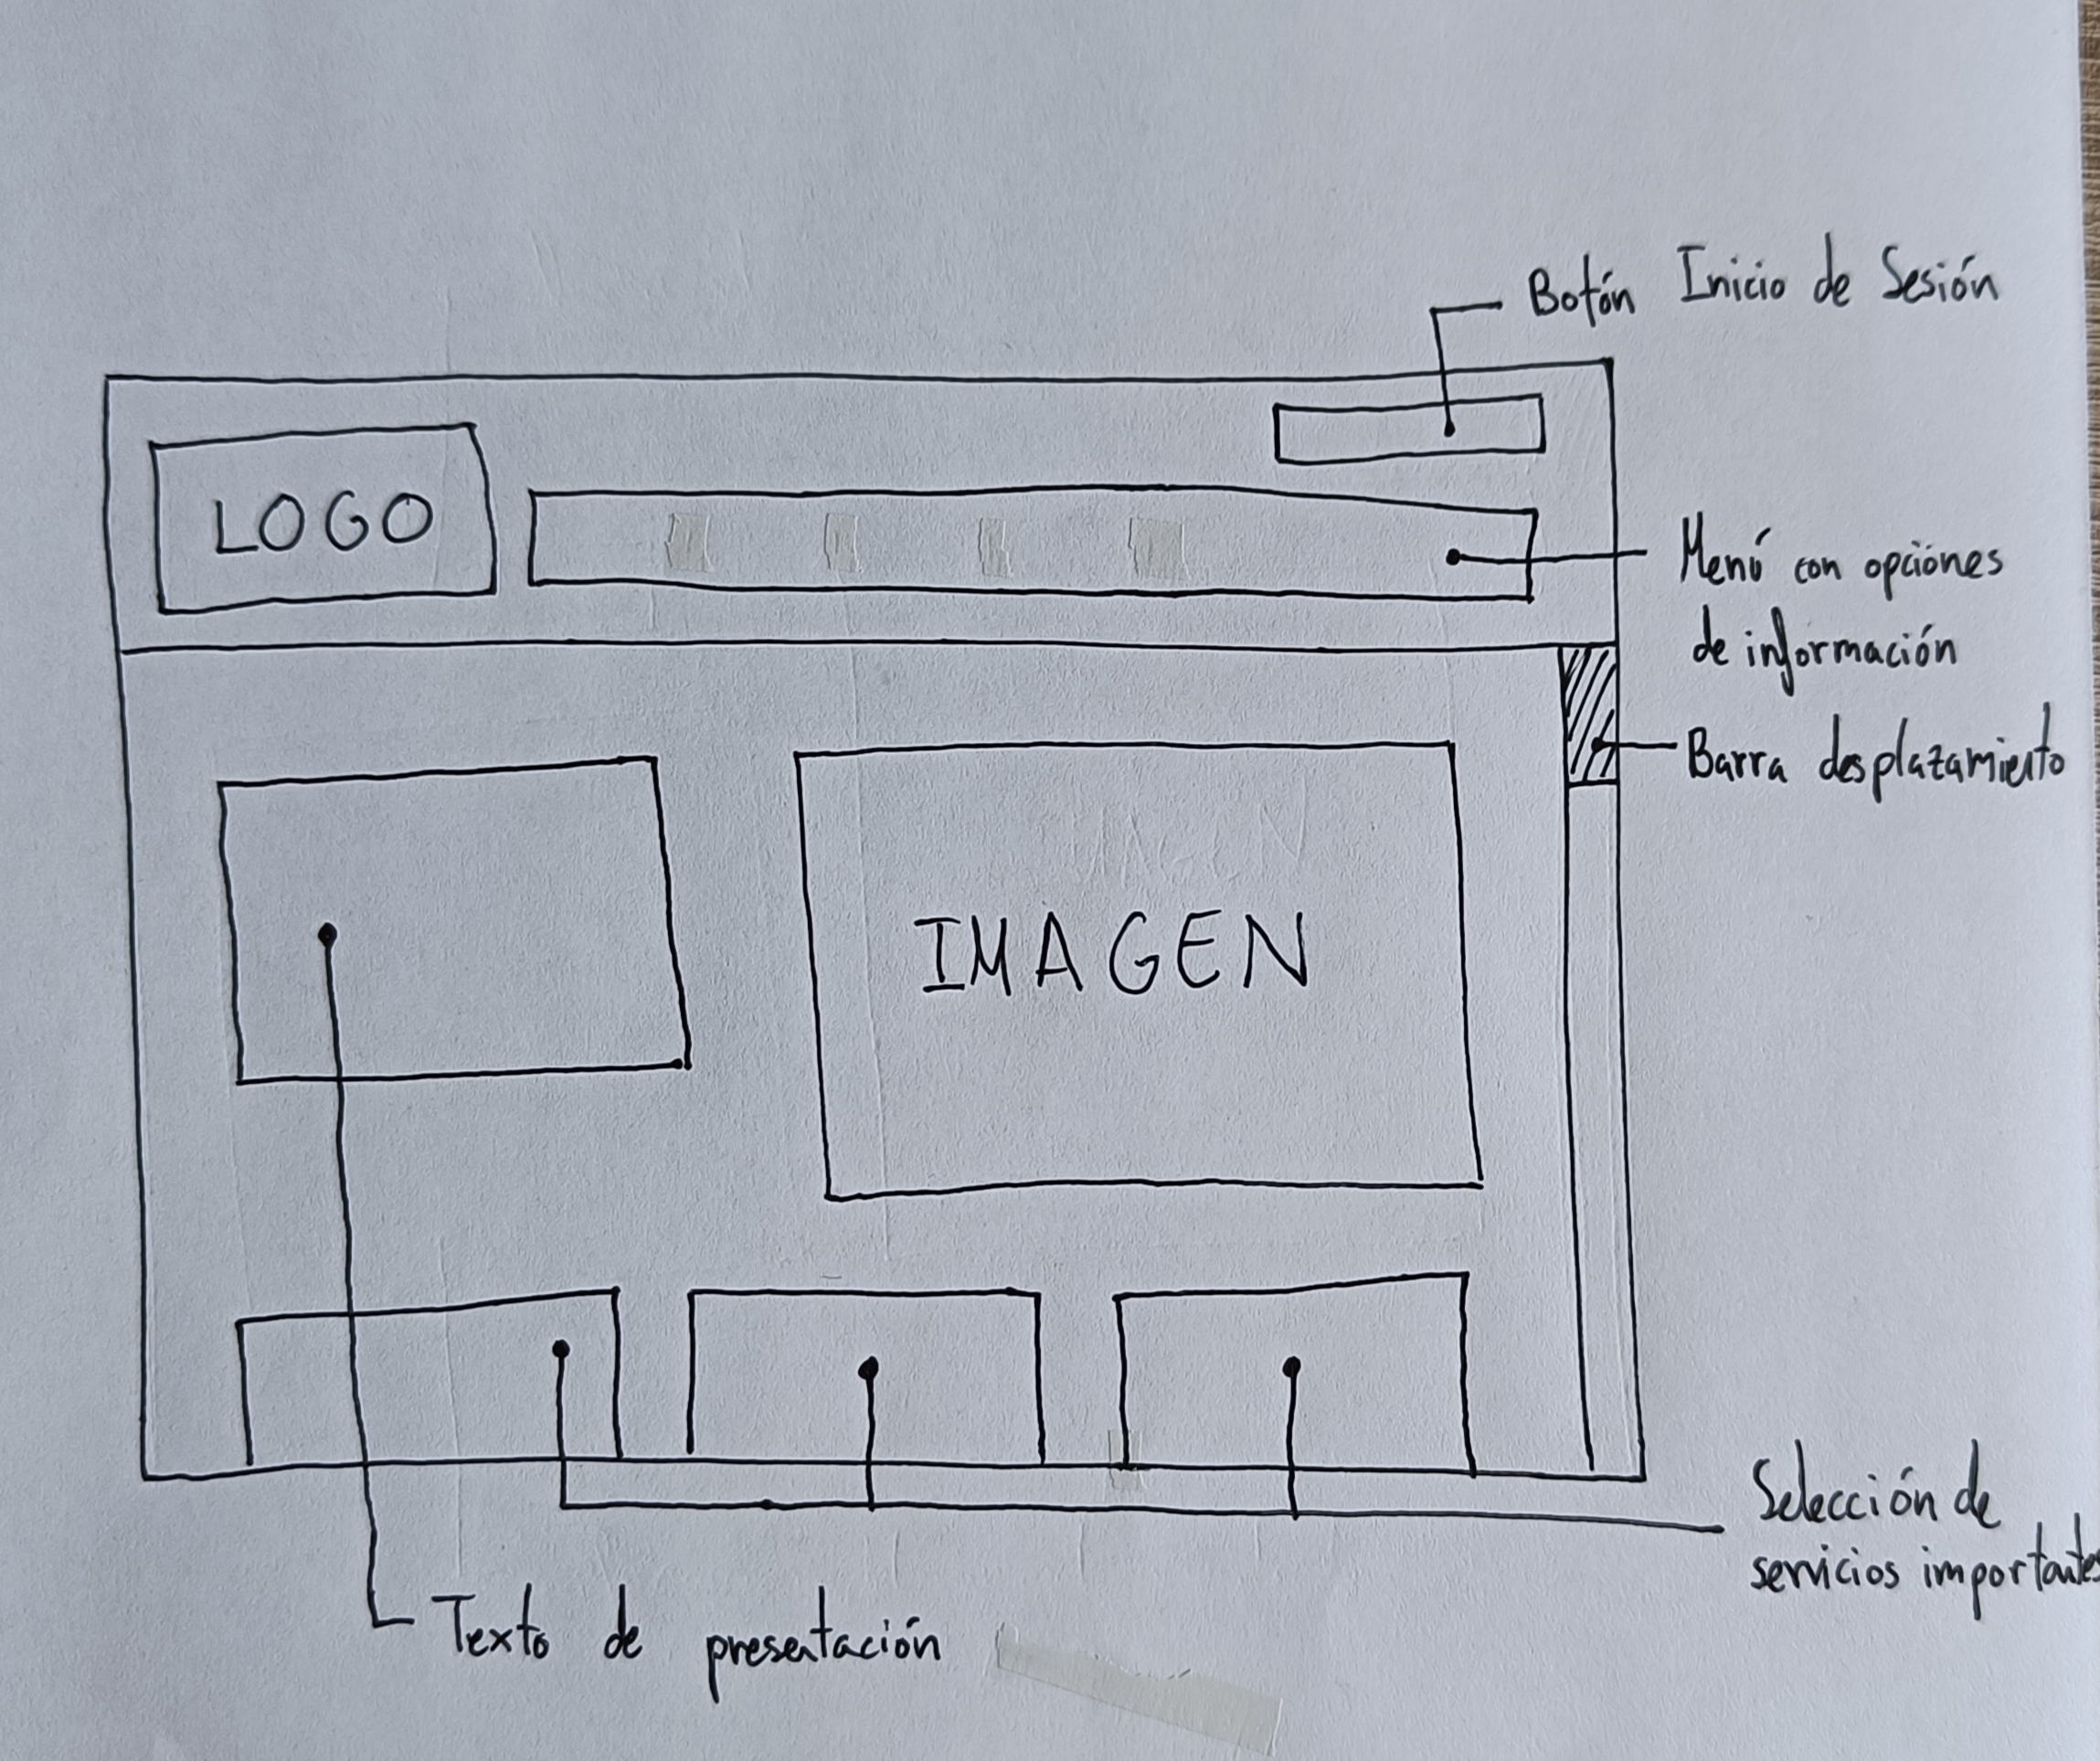 Botón Inicio de Sesión
LOGO
Menú con opciones
de información
Barra desplazamiento
IMAGEN
Selección de
servicios importantes
Texto de presentación